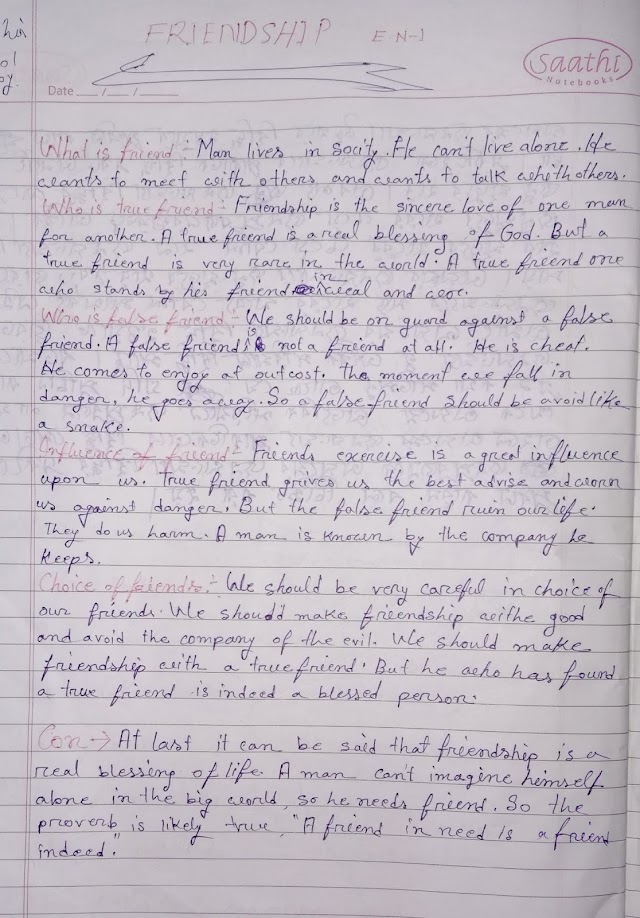 FRIENDSHIP E.N-1
Saathi
Notebooks
Date __/__/__
What is friend :- Man lives in socity. He can't live alone. He
wants to meet with others and wants to talk whith others.
Who is true friend :- Friendship is the sincere love of one man
for another. A true friend is a real blessing of God. But a
true friend is very rare in the world. A true friend one
who stands by his friend in weal and woe.
Who is false friend :- We should be on guard against a false
friend. A false friend is not a friend at all. He is cheat.
He comes to enjoy at out cost. The moment we fall in
danger, he goes away. So a false friend should be avoid like
a snake.
Influence of friend :- Friends exercise is a great influence
upon us. True friend grives us the best advise and worn
us against danger. But the false friend ruin our life.
They do us harm. A man is known by the company he
keeps.
Choice of friends :- We should be very careful in choice of
our friends. We should make friendship withe good
and avoid the company of the evil. We should make
friendship with a true friend. But he who has found
a true friend is indeed a blessed person.
Con → At last it can be said that friendship is a
real blessing of life. A man can't imagine himself
alone in the big world, so he needs friend. So the
proverb is likely true, "A friend in need is a friend
indeed."